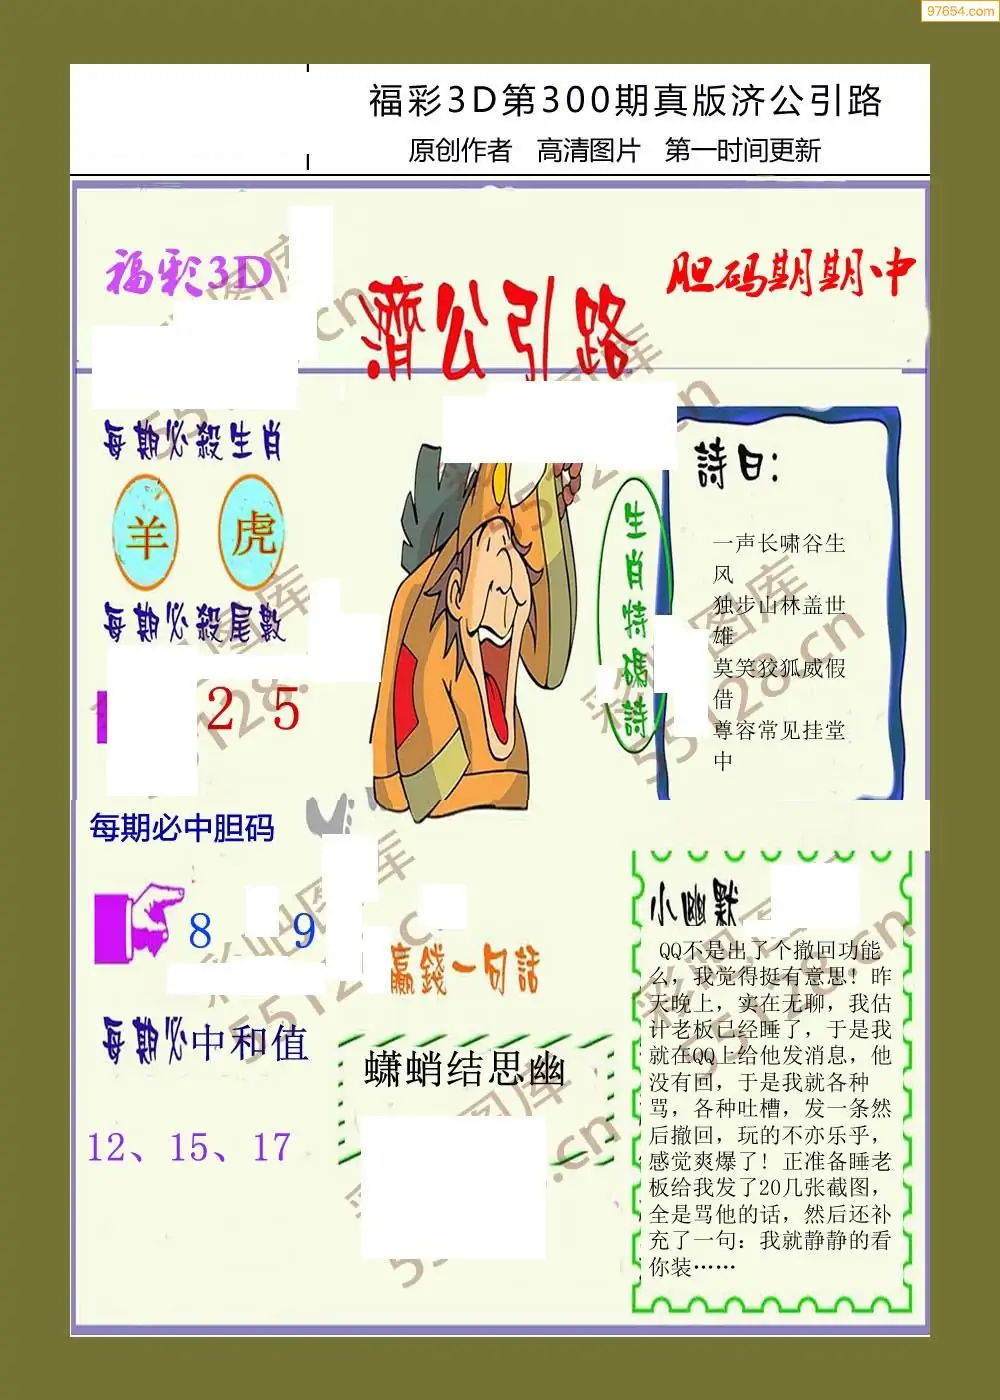 97654.com
福彩3D第300期真版济公引路
原创作者 高清图片 第一时间更新
福彩3D
濟公引路
胆码期期中
每期必殺生肖
羊 虎
每期必殺尾數
2 5
每期必中胆码
8 9
每期必中和值
12、15、17
生肖特碼詩
詩曰:
一声长啸谷生
风
独步山林盖世
雄
莫笑狡狐威假
借
尊容常见挂堂
中
贏錢一句話
蠨蛸结思幽
小幽默
QQ不是出了个撤回功能
么，我觉得挺有意思！昨
天晚上，实在无聊，我估
计老板已经睡了，于是我
就在QQ上给他发消息，他
没有回，于是我就各种
骂，各种吐槽，发一条然
后撤回，玩的不亦乐乎，
感觉爽爆了！正准备睡老
板给我发了20几张截图，
全是骂他的话，然后还补
充了一句：我就静静的看
你装……
彩吧图库
55128.cn